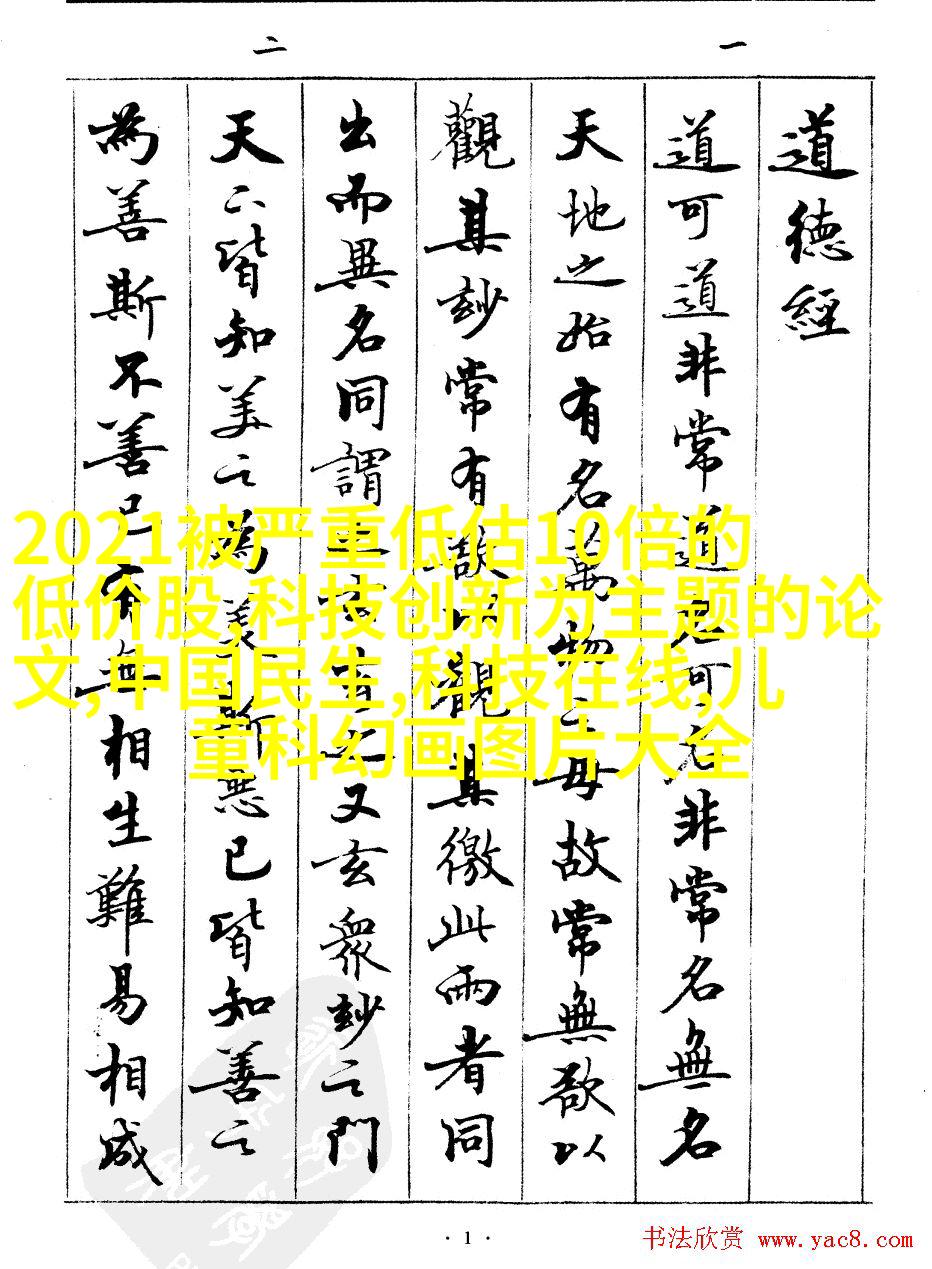 一
二
道德經
道可道非常道名可名非常名無名
天地之始有名萬物之母故常無欲以
觀其玅常有欲以觀其徼此兩者同
出而異名同謂之玄玄之又玄衆玅之門
天下皆知美之為美斯惡已皆知善之
為善斯不善已有無相生難易相成
2021被严重低估10倍的
低价股,科技创新为主题的论
文,中国民生,科技在线,儿
童科幻画图片大全
· 1 ·
书法欣赏 www.yac8.com